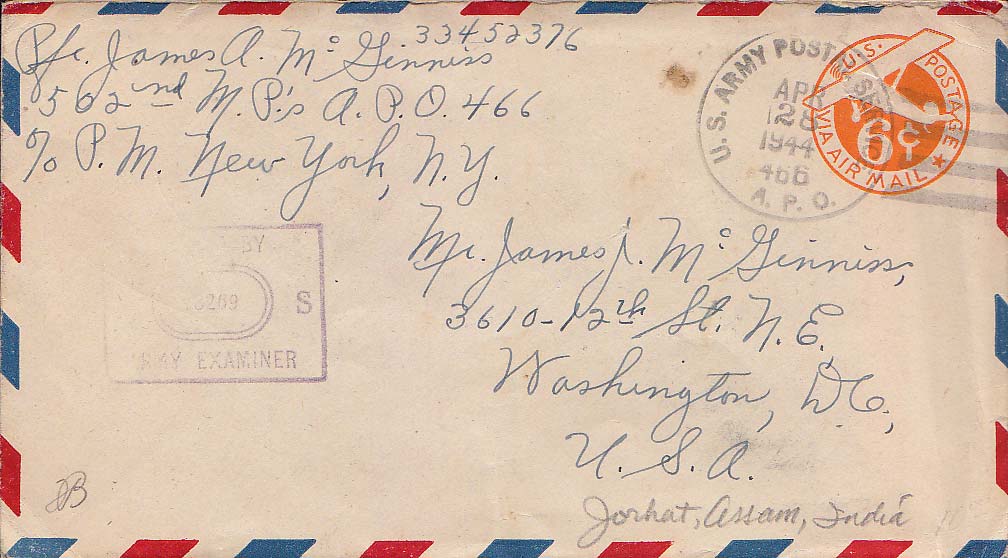 Pfc. James A. McGinniss 33452376
502nd M.P.'s A.P.O. 466
c/o P.M. New York, N.Y.
U.S. ARMY POSTAL
APR
28
1944
466
A. P. O.
U.S. POSTAGE
6¢
VIA AIR MAIL
BY
S
ARMY EXAMINER
Mr. James J. McGinniss,
3610-12th St. N.E.
Washington, D.C.,
U.S.A.
Jorhat, Assam, India